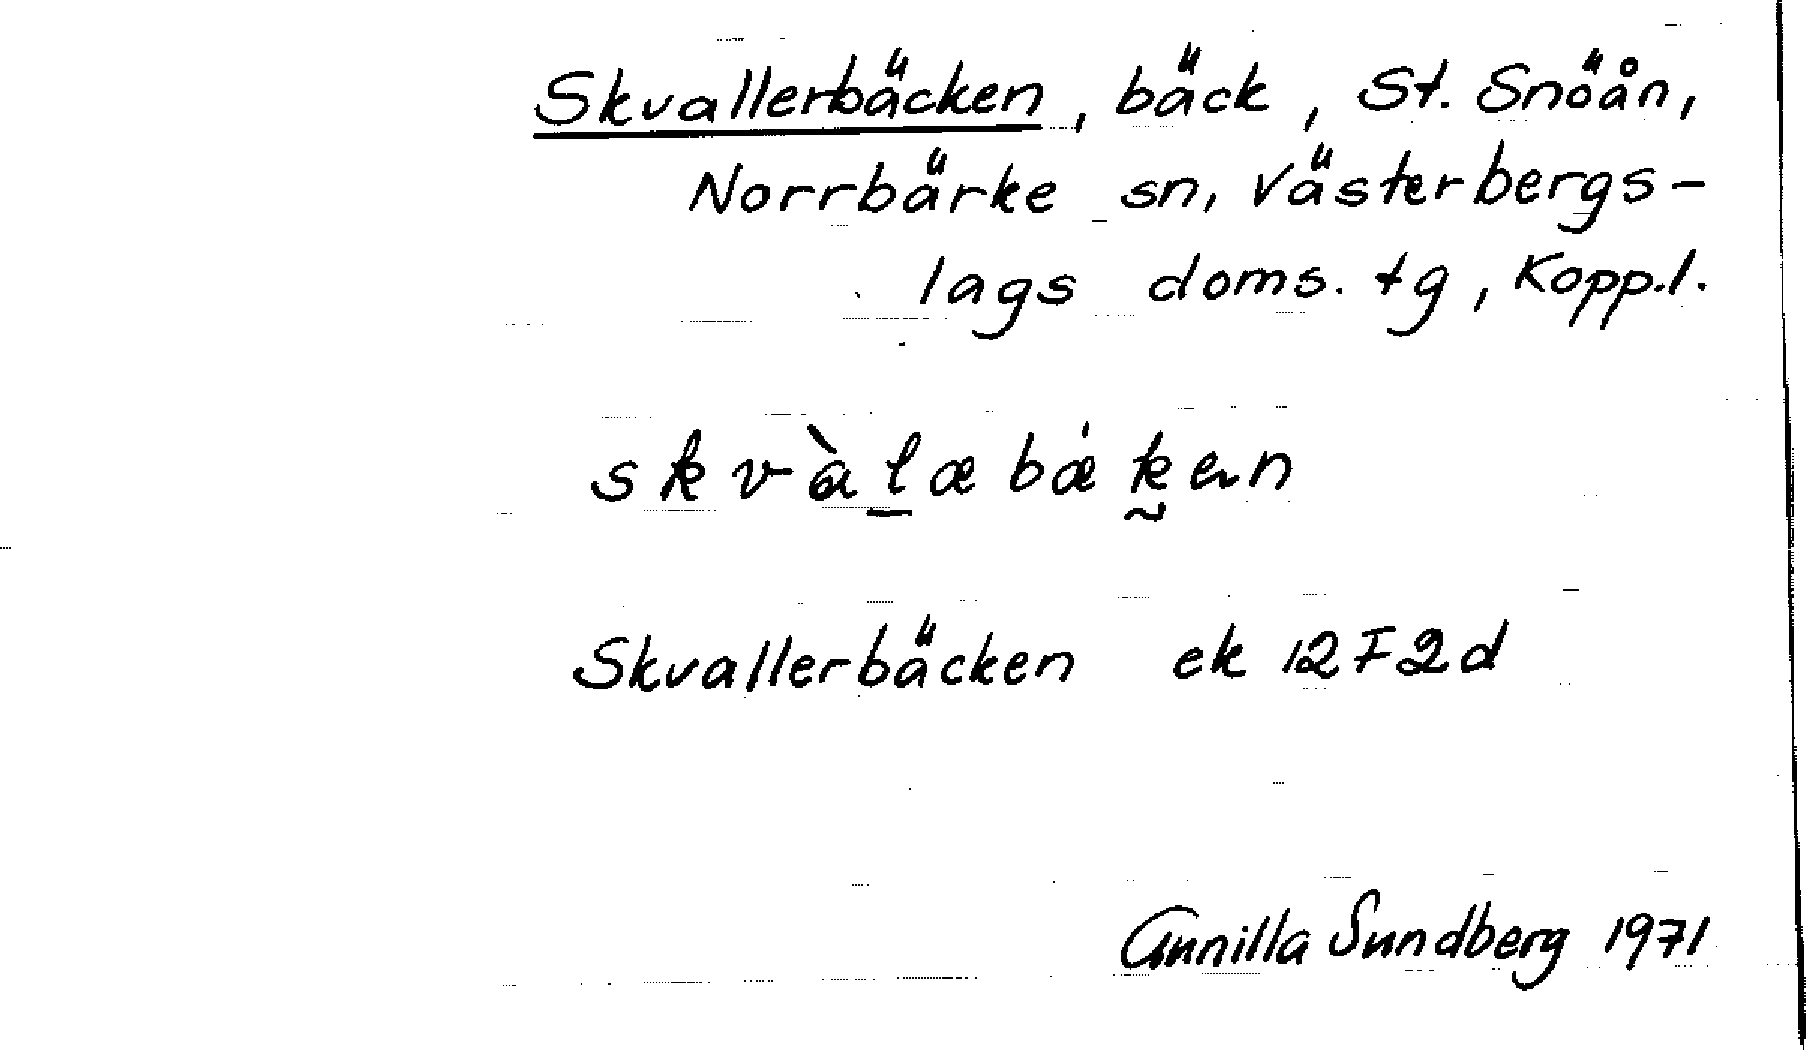 Skvallerbäcken, bäck, St. Snöån,
Norrbärke sn, Västerbergs-
lags doms. tg, Kopp.l.
skvàl̲æbǽk̰ən
Skvallerbäcken ek 12F2d
Gunilla Sundberg 1971